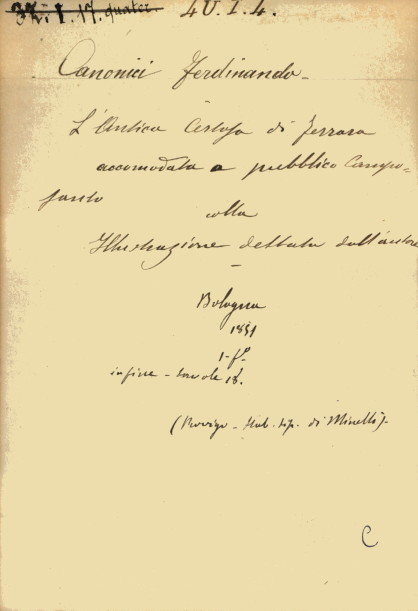 37. I. 17. quater. 40. I. 4.
Canonici Ferdinando -
L'Antica Certosa di Ferrara
accomodata a pubblico Campo-
santo
colla
Illustrazione dettata dall'autore
-
Bologna
1851
1 - f.º
infine - tavole 18.
(Rovigo - Stab. tip. di Minelli) -
C